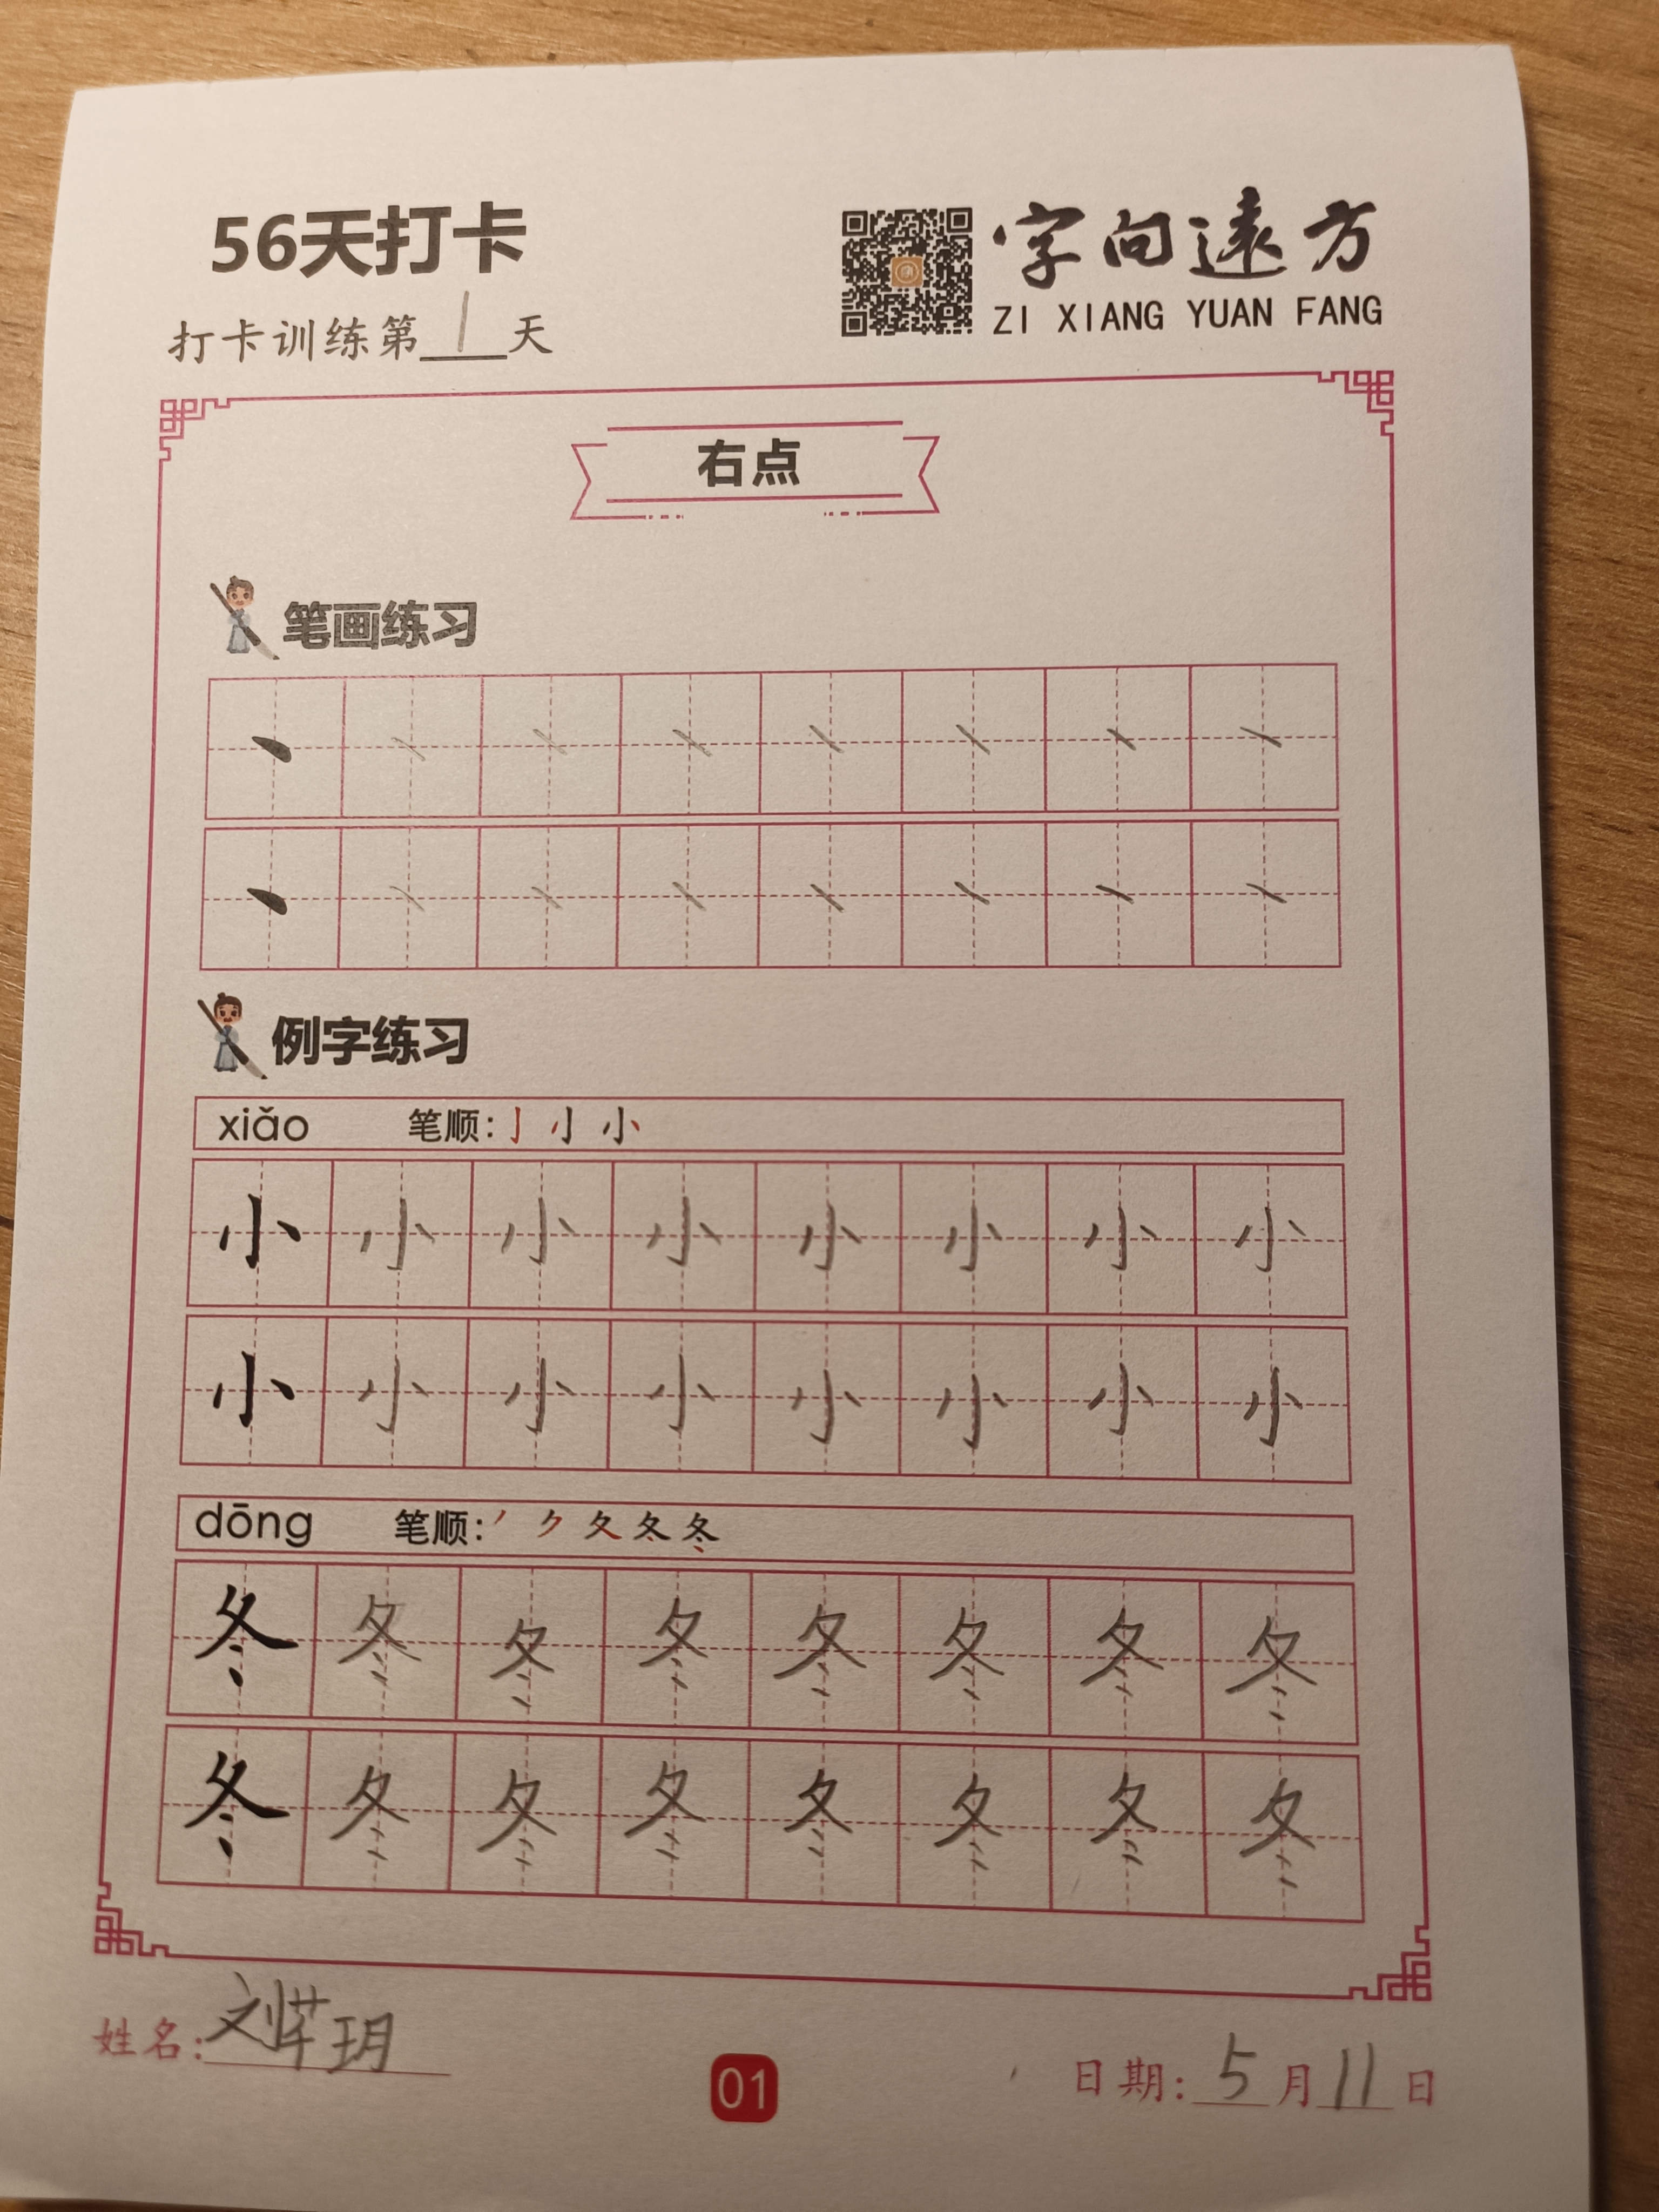 56天打卡
字向远方
ZI XIANG YUAN FANG
打卡训练第1天
右点
笔画练习
丶
丶
例字练习
xiǎo 笔顺: 亅 小
小 小 小 小 小 小 小 小
小 小 小 小 小 小 小 小
dōng 笔顺: 丿 ク 夂 冬
冬 冬 冬 冬 冬 冬 冬 冬
冬 冬 冬 冬 冬 冬 冬 冬
姓名: 刘芈玥
01
日期: 5月11日